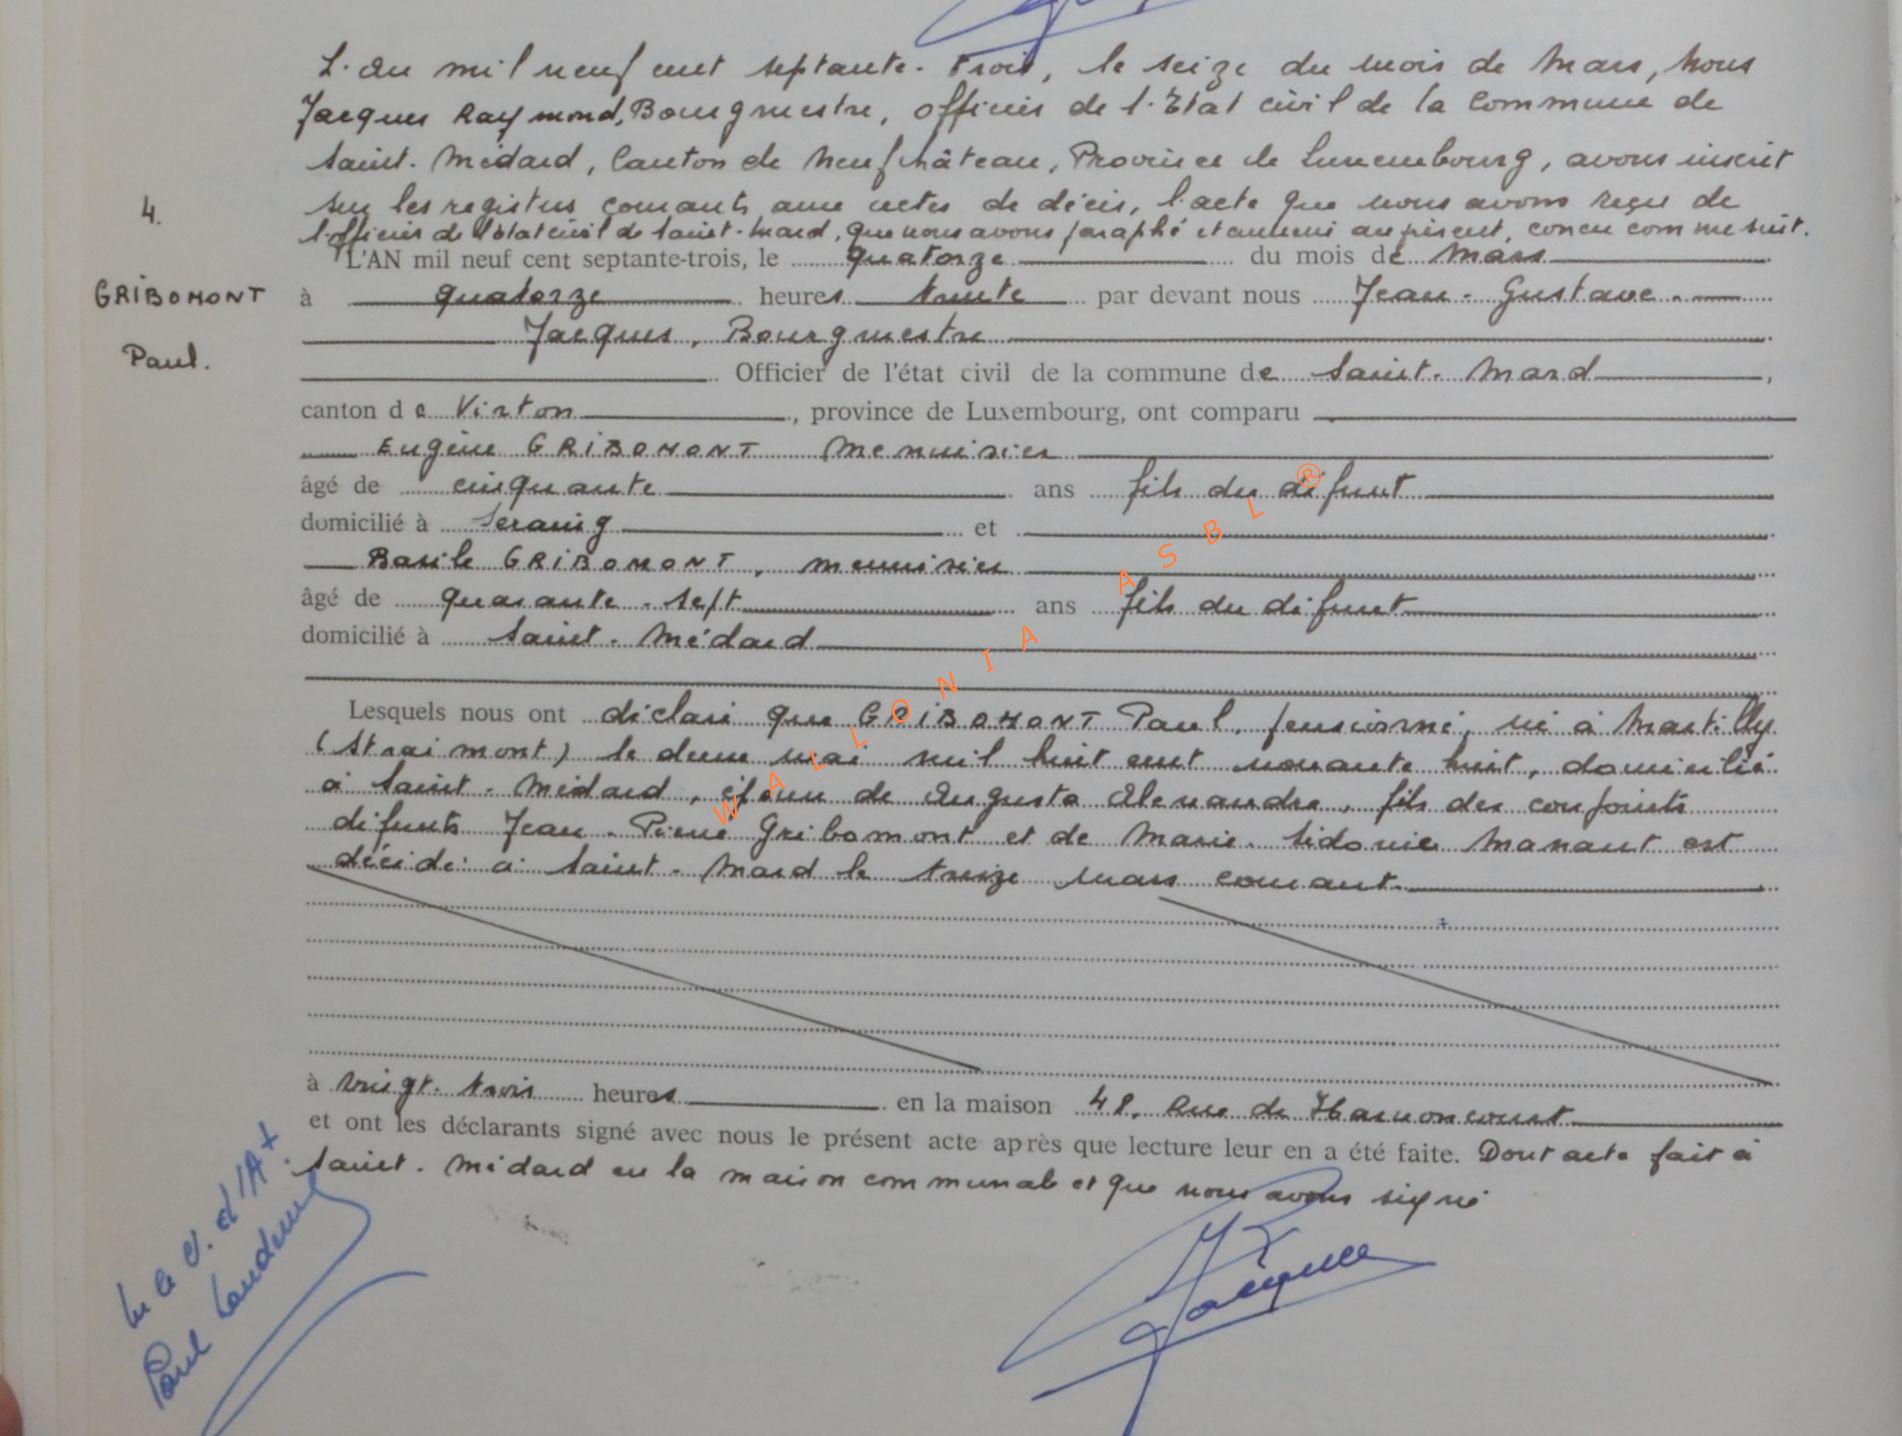 L'an mil neuf cent septante-trois, le seize du mois de Mars, Nous
Jacques Raymond, Bourgmestre, officier de l'Etat civil de la Commune de
Saint-Médard, Canton de Neufchâteau, Province de Luxembourg, avons inscrit
sur les registres courants aux actes de décès, l'acte que nous avons reçu de
l'officier de l'Etat civil de Saint-Mard, que nous avons paraphé et annexé au présent, conçu comme suit.
4.
L'AN mil neuf cent septante-trois, le quatorze du mois de Mars
GRIBOMONT
à quatorze heures trente par devant nous Jean-Gustave
Jacques, Bourgmestre
Paul.
Officier de l'état civil de la commune de Saint-Mard,
canton de Virton, province de Luxembourg, ont comparu
Eugène GRIBOMONT menuisier
âgé de cinquante ans fils du défunt
domicilié à Seraing et
Basile GRIBOMONT, menuisier
âgé de quarante-sept ans fils du défunt
domicilié à Saint-Médard
Lesquels nous ont déclaré que GRIBOMONT Paul, pensionné, né à Martilly
(Straimont) le deux mai mil huit cent nonante huit, domicilié
à Saint-Médard, époux de Augusta Alexandre, fils des conjoints
défunts Jean-Pierre Gribomont et de Marie-Sidonie Manant est
décédé à Saint-Mard le treize mars courant.
à vingt-trois heures en la maison 48, Rue de Harnoncourt
et ont les déclarants signé avec nous le présent acte après que lecture leur en a été faite. Dont acte fait à
Saint-Médard en la maison communale et que nous avons signé
Jacques
Paul
WALLONIA ASBL ®